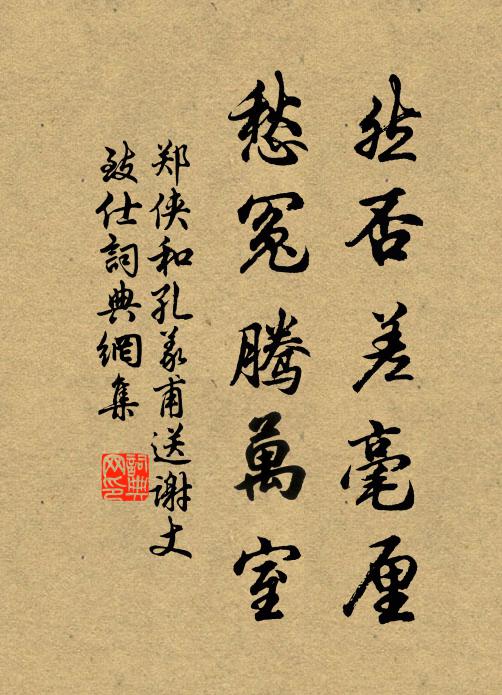 然否差毫厘
愁冤腾萬室
郑侠和孔義甫送谢丈
致仕詞典網集
詞典
网印